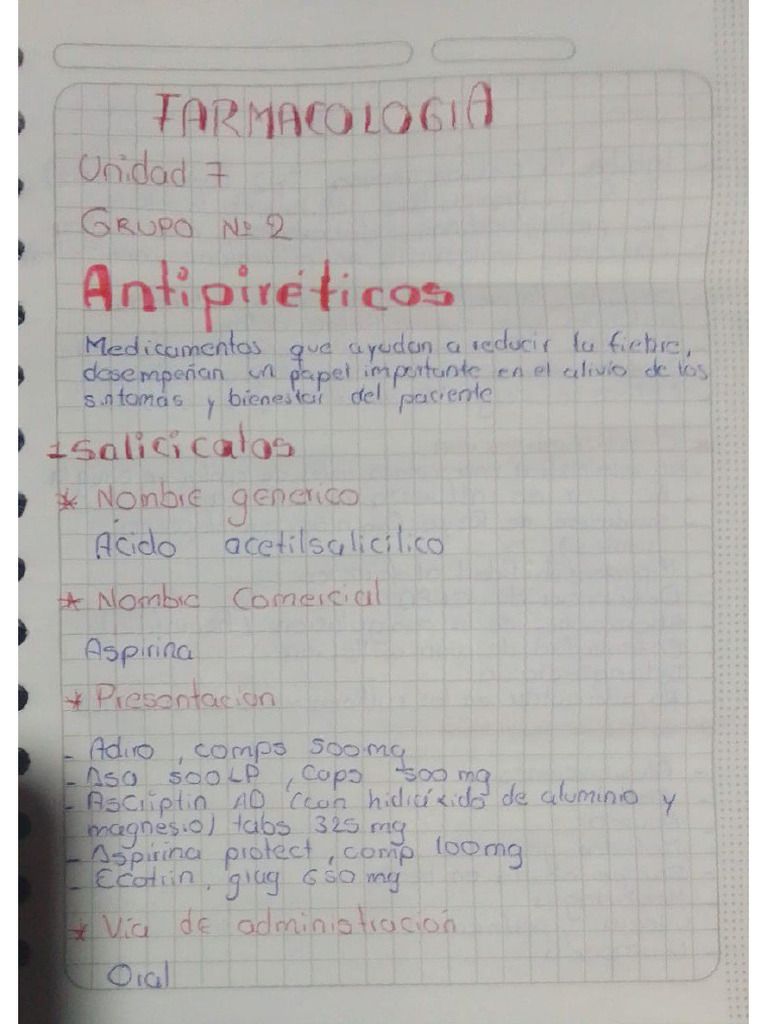 FARMACOLOGIA
Unidad 7
GRUPO Nº 2
Antipiréticos
Medicamentos que ayudan a reducir la fiebre,
desempeñan un papel importante en el alivio de los
sintomas y bienestar del paciente
1 Salicicatos
* Nombre generico
Ácido acetilsalicilico
* Nombre Comercial
Aspirina
* Presentacion
- Adiro, comps 500mg
- Asa 500LP, Caps 500mg
- Ascriptin AD (con hidróxido de aluminio y
magnesio) tabs 325 mg
- Aspirina protect, comp 100mg
- Ecotrin, grag 650mg
* Vía de administración
Oral